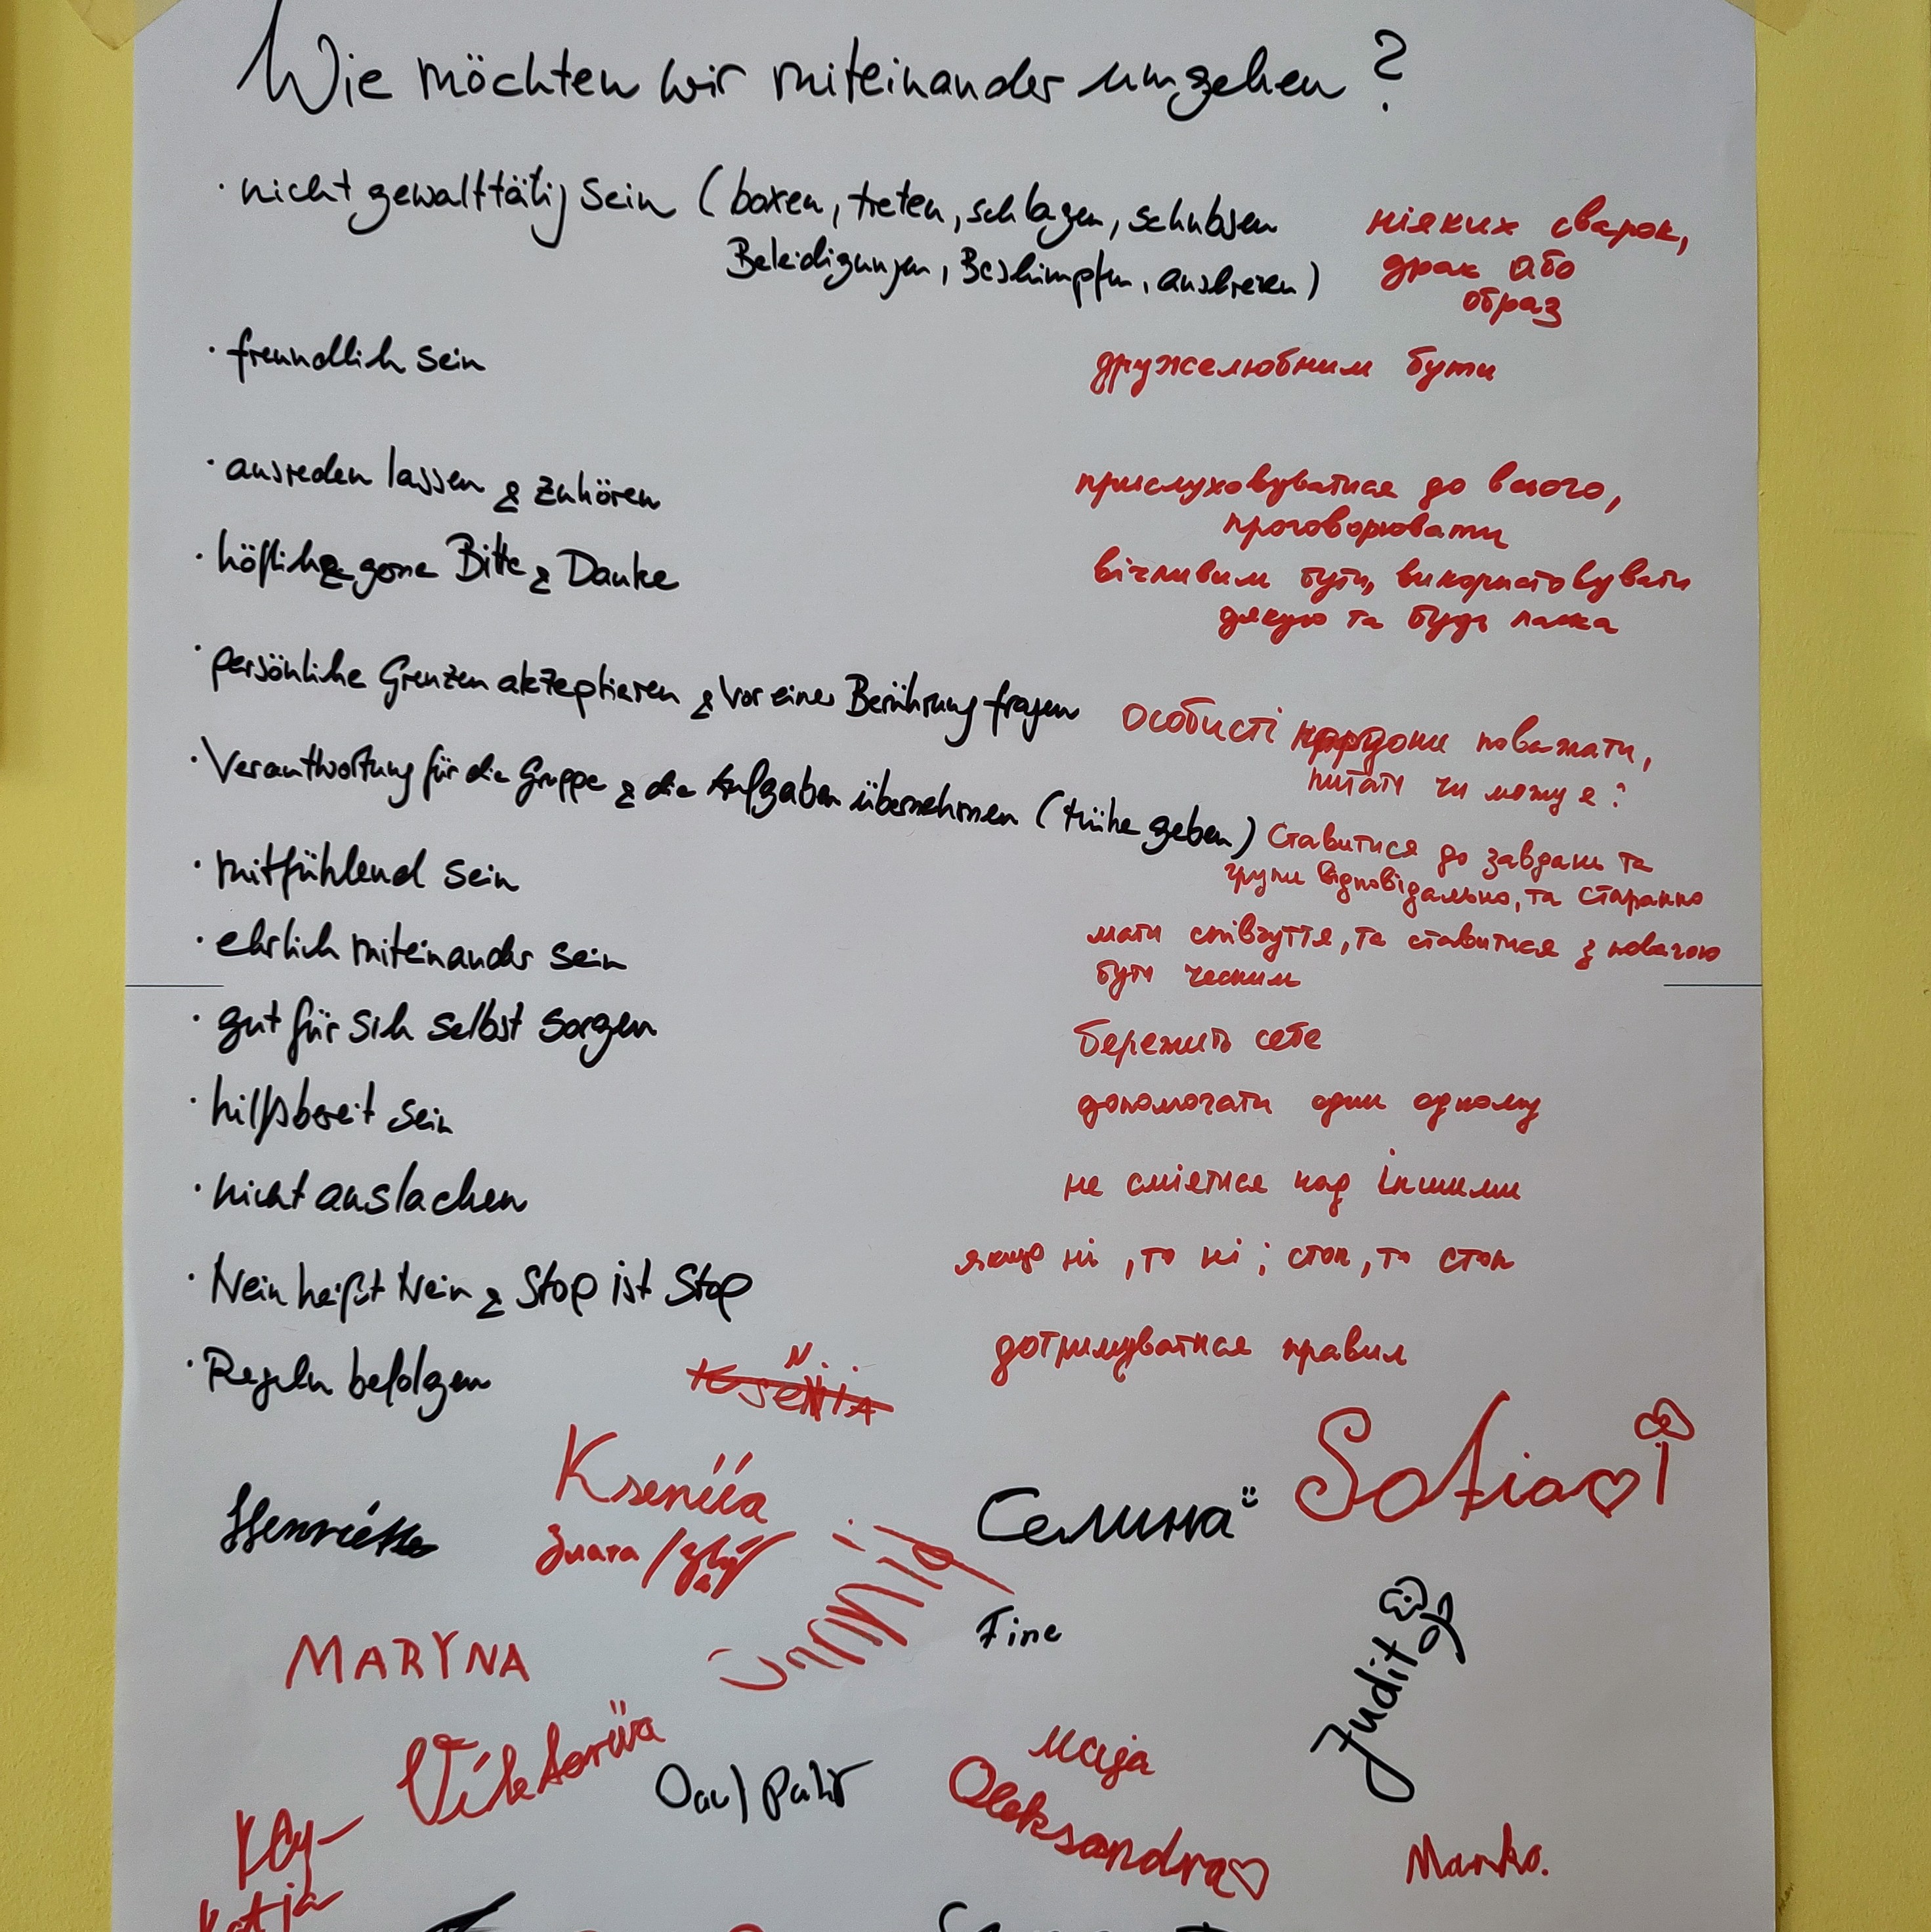 Wie möchten wir miteinander umgehen?
· nicht gewalttätig sein (boxen, treten, schlagen, schubsen
Beleidigungen, Beschimpfen, )
ніяких сварок,
драк або
образ
· freundlich sein
дружелюбним бути
· ausreden lassen & zuhören
прислуховуватися до всього,
проговорювати
· höflich & gerne Bitte & Danke
вічливим бути, використовувати
дякую та будь ласка
· persönliche Grenzen akzeptieren & vor einer Berührung fragen
особисті кордони поважати,
питати чи можу я?
· Verantwortung für die Gruppe & die Aufgaben übernehmen (Mühe geben)
Ставитися до завдань та
групи відповідально, та старанно
· mitfühlend sein
мати співчуття, та ставитися з повагою
· ehrlich miteinander sein
бути чесним
· gut für sich selbst sorgen
бережить себе
· hilfsbereit sein
допомогати один одному
· nicht auslachen
не сміятися над іншими
· Nein heißt Nein & Stop ist Stop
якщо ні, то ні; стоп, то стоп
· Regeln befolgen
дотримуватися правил
Kseniia
Henriette
Селина
Sofia
Злата /
Fine
MARYNA
Judit
Viktoriia
Maija
Oleksandra
Marko.
Katja